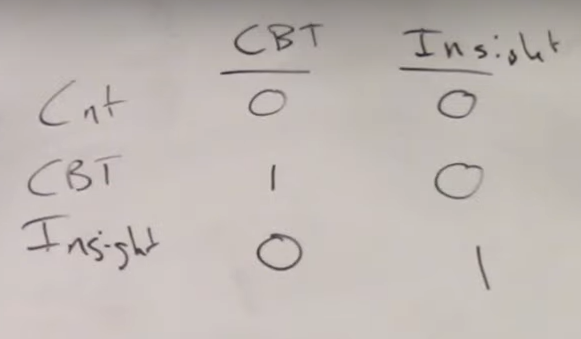 CBT Insight
Cnt 0 0
CBT 1 0
Insight 0 1